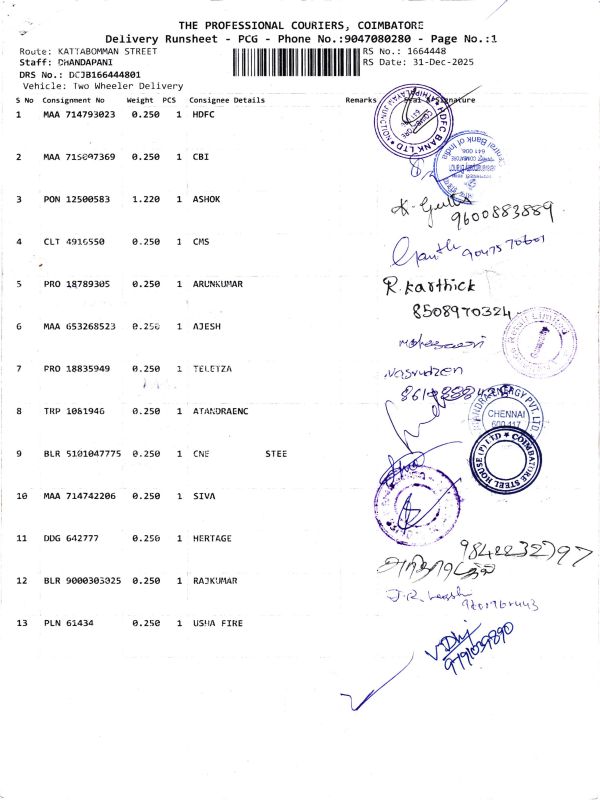 THE PROFESSIONAL COURIERS, COIMBATORE
Delivery Runsheet - PCG - Phone No.:9047080280 - Page No.:1
Route: KATTABOMMAN STREET RS No.: 1664448
Staff: DHANDAPANI RS Date: 31-Dec-2025
DRS No.: DCJB166444801
Vehicle: Two Wheeler Delivery
S No Consignment No Weight PCS Consignee Details Remarks Seal & Signature
1 MAA 714793023 0.250 1 HDFC
HDFC BANK LTD
2 MAA 715697369 0.250 1 CBI
Central Bank of India
3 PON 12500583 1.220 1 ASHOK
9600883889
4 CLT 4916550 0.250 1 CMS
9047570601
5 PRO 18789305 0.250 1 ARUNKUMAR R.Karthick
8508970324
6 MAA 653268523 0.250 1 AJESH
Limited
7 PRO 18835949 0.250 1 TELETZA
8 TRP 1081946 0.250 1 ATANDRAENC
ENERGY PVT. LTD.
CHENNAI
600 117
9 BLR 5101047775 0.250 1 CNE STEE
COIMBATORE STEEL HOUSE (P) LTD
10 MAA 714742206 0.250 1 SIVA
11 DDG 642777 0.250 1 HERTAGE
12 BLR 9000303025 0.250 1 RAJKUMAR
13 PLN 61434 0.250 1 USHA FIRE
9791039890